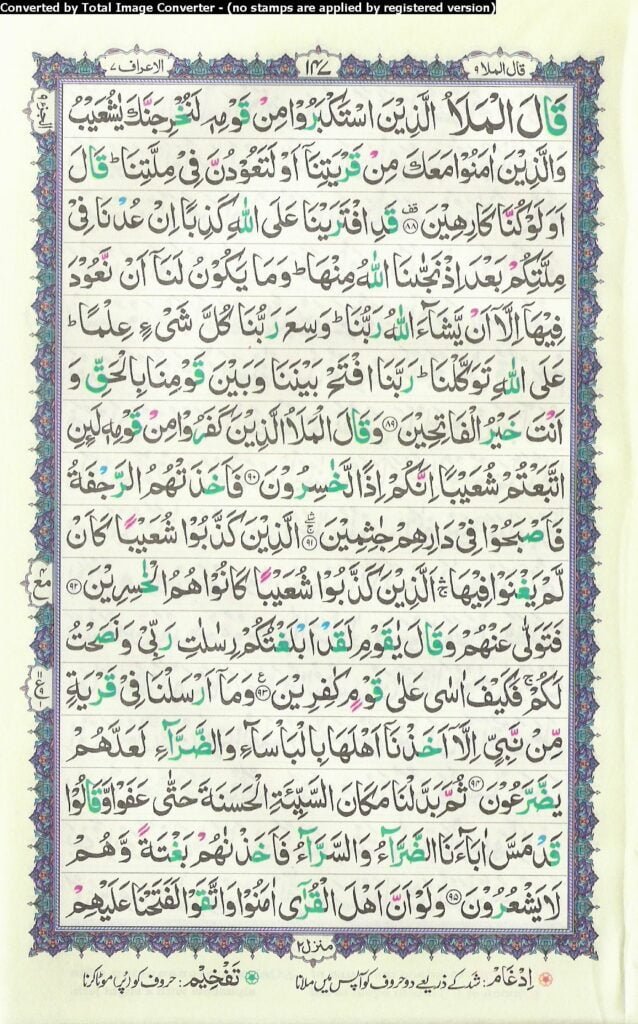 Converted by Total Image Converter - (no stamps are applied by registered version)
قال الملا ٩
١٤٧
الاعراف ٧
قَالَ الْمَلَاُ الَّذِيْنَ اسْتَكْبَرُوْا مِنْ قَوْمِهٖ لَنُخْرِجَنَّكَ يٰشُعَيْبُ
وَالَّذِيْنَ اٰمَنُوْا مَعَكَ مِنْ قَرْيَتِنَاۤ اَوْ لَتَعُوْدُنَّ فِيْ مِلَّتِنَا ؕ قَالَ
اَوَلَوْ كُنَّا كَارِهِيْنَ ۟ۚ۸۸ قَدِ افْتَرَيْنَا عَلَى اللّٰهِ كَذِبًا اِنْ عُدْنَا فِيْ
مِلَّتِكُمْ بَعْدَ اِذْ نَجّٰىنَا اللّٰهُ مِنْهَا ؕ وَمَا يَكُوْنُ لَنَاۤ اَنْ نَّعُوْدَ
فِيْهَاۤ اِلَّاۤ اَنْ يَّشَآءَ اللّٰهُ رَبُّنَا ؕ وَسِعَ رَبُّنَا كُلَّ شَيْءٍ عِلْمًا ؕ
عَلَى اللّٰهِ تَوَكَّلْنَا ؕ رَبَّنَا افْتَحْ بَيْنَنَا وَبَيْنَ قَوْمِنَا بِالْحَقِّ وَ
اَنْتَ خَيْرُ الْفَاتِحِيْنَ ۸۹ وَقَالَ الْمَلَاُ الَّذِيْنَ كَفَرُوْا مِنْ قَوْمِهٖ لَئِنِ
اتَّبَعْتُمْ شُعَيْبًا اِنَّكُمْ اِذًا لَّخٰسِرُوْنَ ۹۰ فَاَخَذَتْهُمُ الرَّجْفَةُ
فَاَصْبَحُوْا فِيْ دَارِهِمْ جٰثِمِيْنَ ۹۱ الَّذِيْنَ كَذَّبُوْا شُعَيْبًا كَاَنْ
لَّمْ يَغْنَوْا فِيْهَا ۛۚ اَلَّذِيْنَ كَذَّبُوْا شُعَيْبًا كَانُوْا هُمُ الْخٰسِرِيْنَ ۹۲
فَتَوَلّٰى عَنْهُمْ وَقَالَ يٰقَوْمِ لَقَدْ اَبْلَغْتُكُمْ رِسٰلٰتِ رَبِّيْ وَنَصَحْتُ
لَكُمْ ۚ فَكَيْفَ اٰسٰى عَلٰى قَوْمٍ كٰفِرِيْنَ ۹۳ ع وَمَاۤ اَرْسَلْنَا فِيْ قَرْيَةٍ
مِّنْ نَّبِيٍّ اِلَّاۤ اَخَذْنَاۤ اَهْلَهَا بِالْبَاْسَآءِ وَالضَّرَّآءِ لَعَلَّهُمْ
يَضَّرَّعُوْنَ ۹۴ ثُمَّ بَدَّلْنَا مَكَانَ السَّيِّئَةِ الْحَسَنَةَ حَتّٰى عَفَوْا وَّقَالُوْا
قَدْ مَسَّ اٰبَآءَنَا الضَّرَّآءُ وَالسَّرَّآءُ فَاَخَذْنٰهُمْ بَغْتَةً وَّهُمْ
لَا يَشْعُرُوْنَ ۹۵ وَلَوْ اَنَّ اَهْلَ الْقُرٰۤى اٰمَنُوْا وَاتَّقَوْا لَفَتَحْنَا عَلَيْهِمْ
منزل ٢
اِدْغَام: شد کے ذریعے دو حروف کو آپس میں ملانا
تَفْخِيْم: حروف کو (پُر) موٹا کرنا